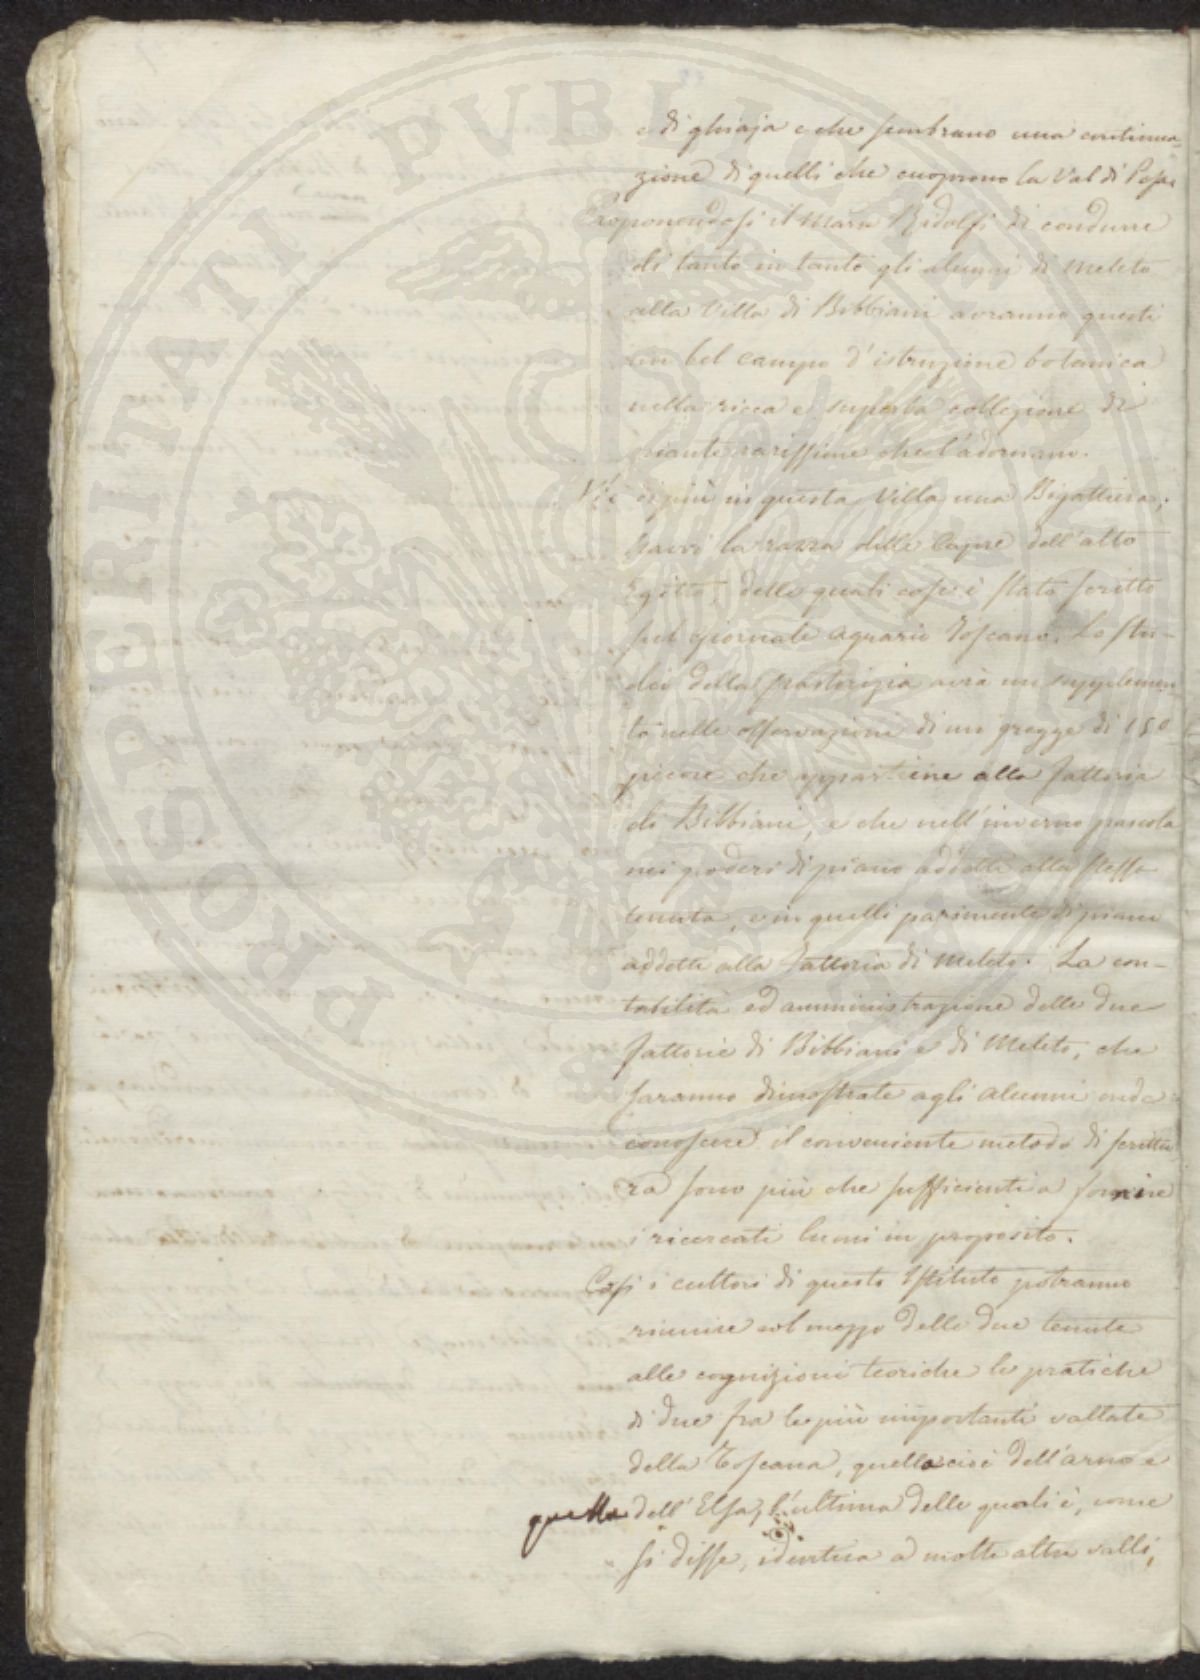 e di ghiaja e che sembrano una continua-
zione di quelli che cuoprono la Val di Pesa.
Proponendosi il March Ridolfi di condurre
di tanto in tanto gli alunni di Meleto
alla Villa di Bibbiani avranno questi
un bel campo d'istruzione botanica
nella ricca e superba collezione di
piante rarissime che l'adornano.
V'è di più in questa Villa una Bigattiera;
havvi la razza delle Capre dell'alto
Egitto, delle quali cose è stato scritto
nel Giornale Agrario Toscano. Lo stu-
dio della pastorizia avrà un supplemen-
to nelle osservazioni di un gregge di 150
pecore che appartiene alla fattoria
di Bibbiani, e che nell'inverno pascola
nei poderi di piano addetti alla stessa
tenuta, e in quelli parimente di piano
addetti alla fattoria di Meleto. La con-
tabilità ed amministrazione delle due
fattorie di Bibbiani e di Meleto, che
saranno dimostrate agli alunni onde
conoscere il conveniente metodo di scrittu-
ra sono più che sufficienti a fornire
i ricercati lumi in proposito.
Così i cultori di questo Istituto potranno
riunire col mezzo delle due tenute
alle cognizioni teoriche le pratiche
di due fra le più importanti vallate
della Toscana, quella cioè dell'Arno e
quella dell'Elsa, l'ultima delle quali è, come
si disse, identica a molte altre valli,
PROSPERITATI PVBLICAE